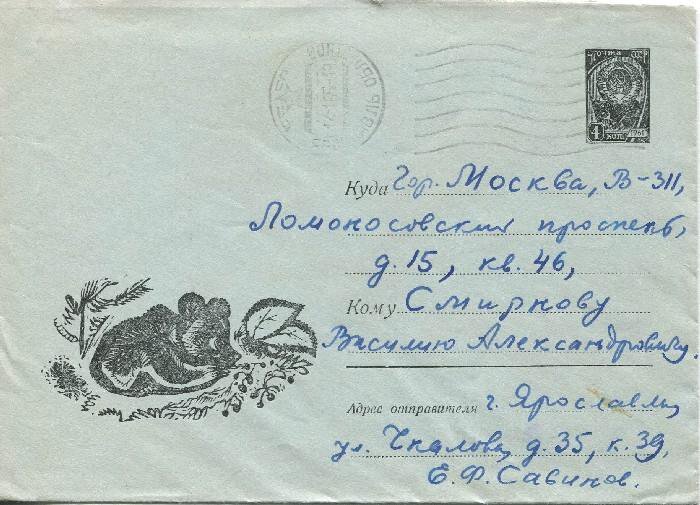 почта СССР
4 коп. 1961
Куда Гор. Москва, В-311,
Ломоносовский проспект,
д. 15, кв. 46,
Кому Смирнову
Василию Александровичу.
Адрес отправителя г. Ярославль,
ул. Чкалова, д. 35, к. 39,
Е. Ф. Савинов.